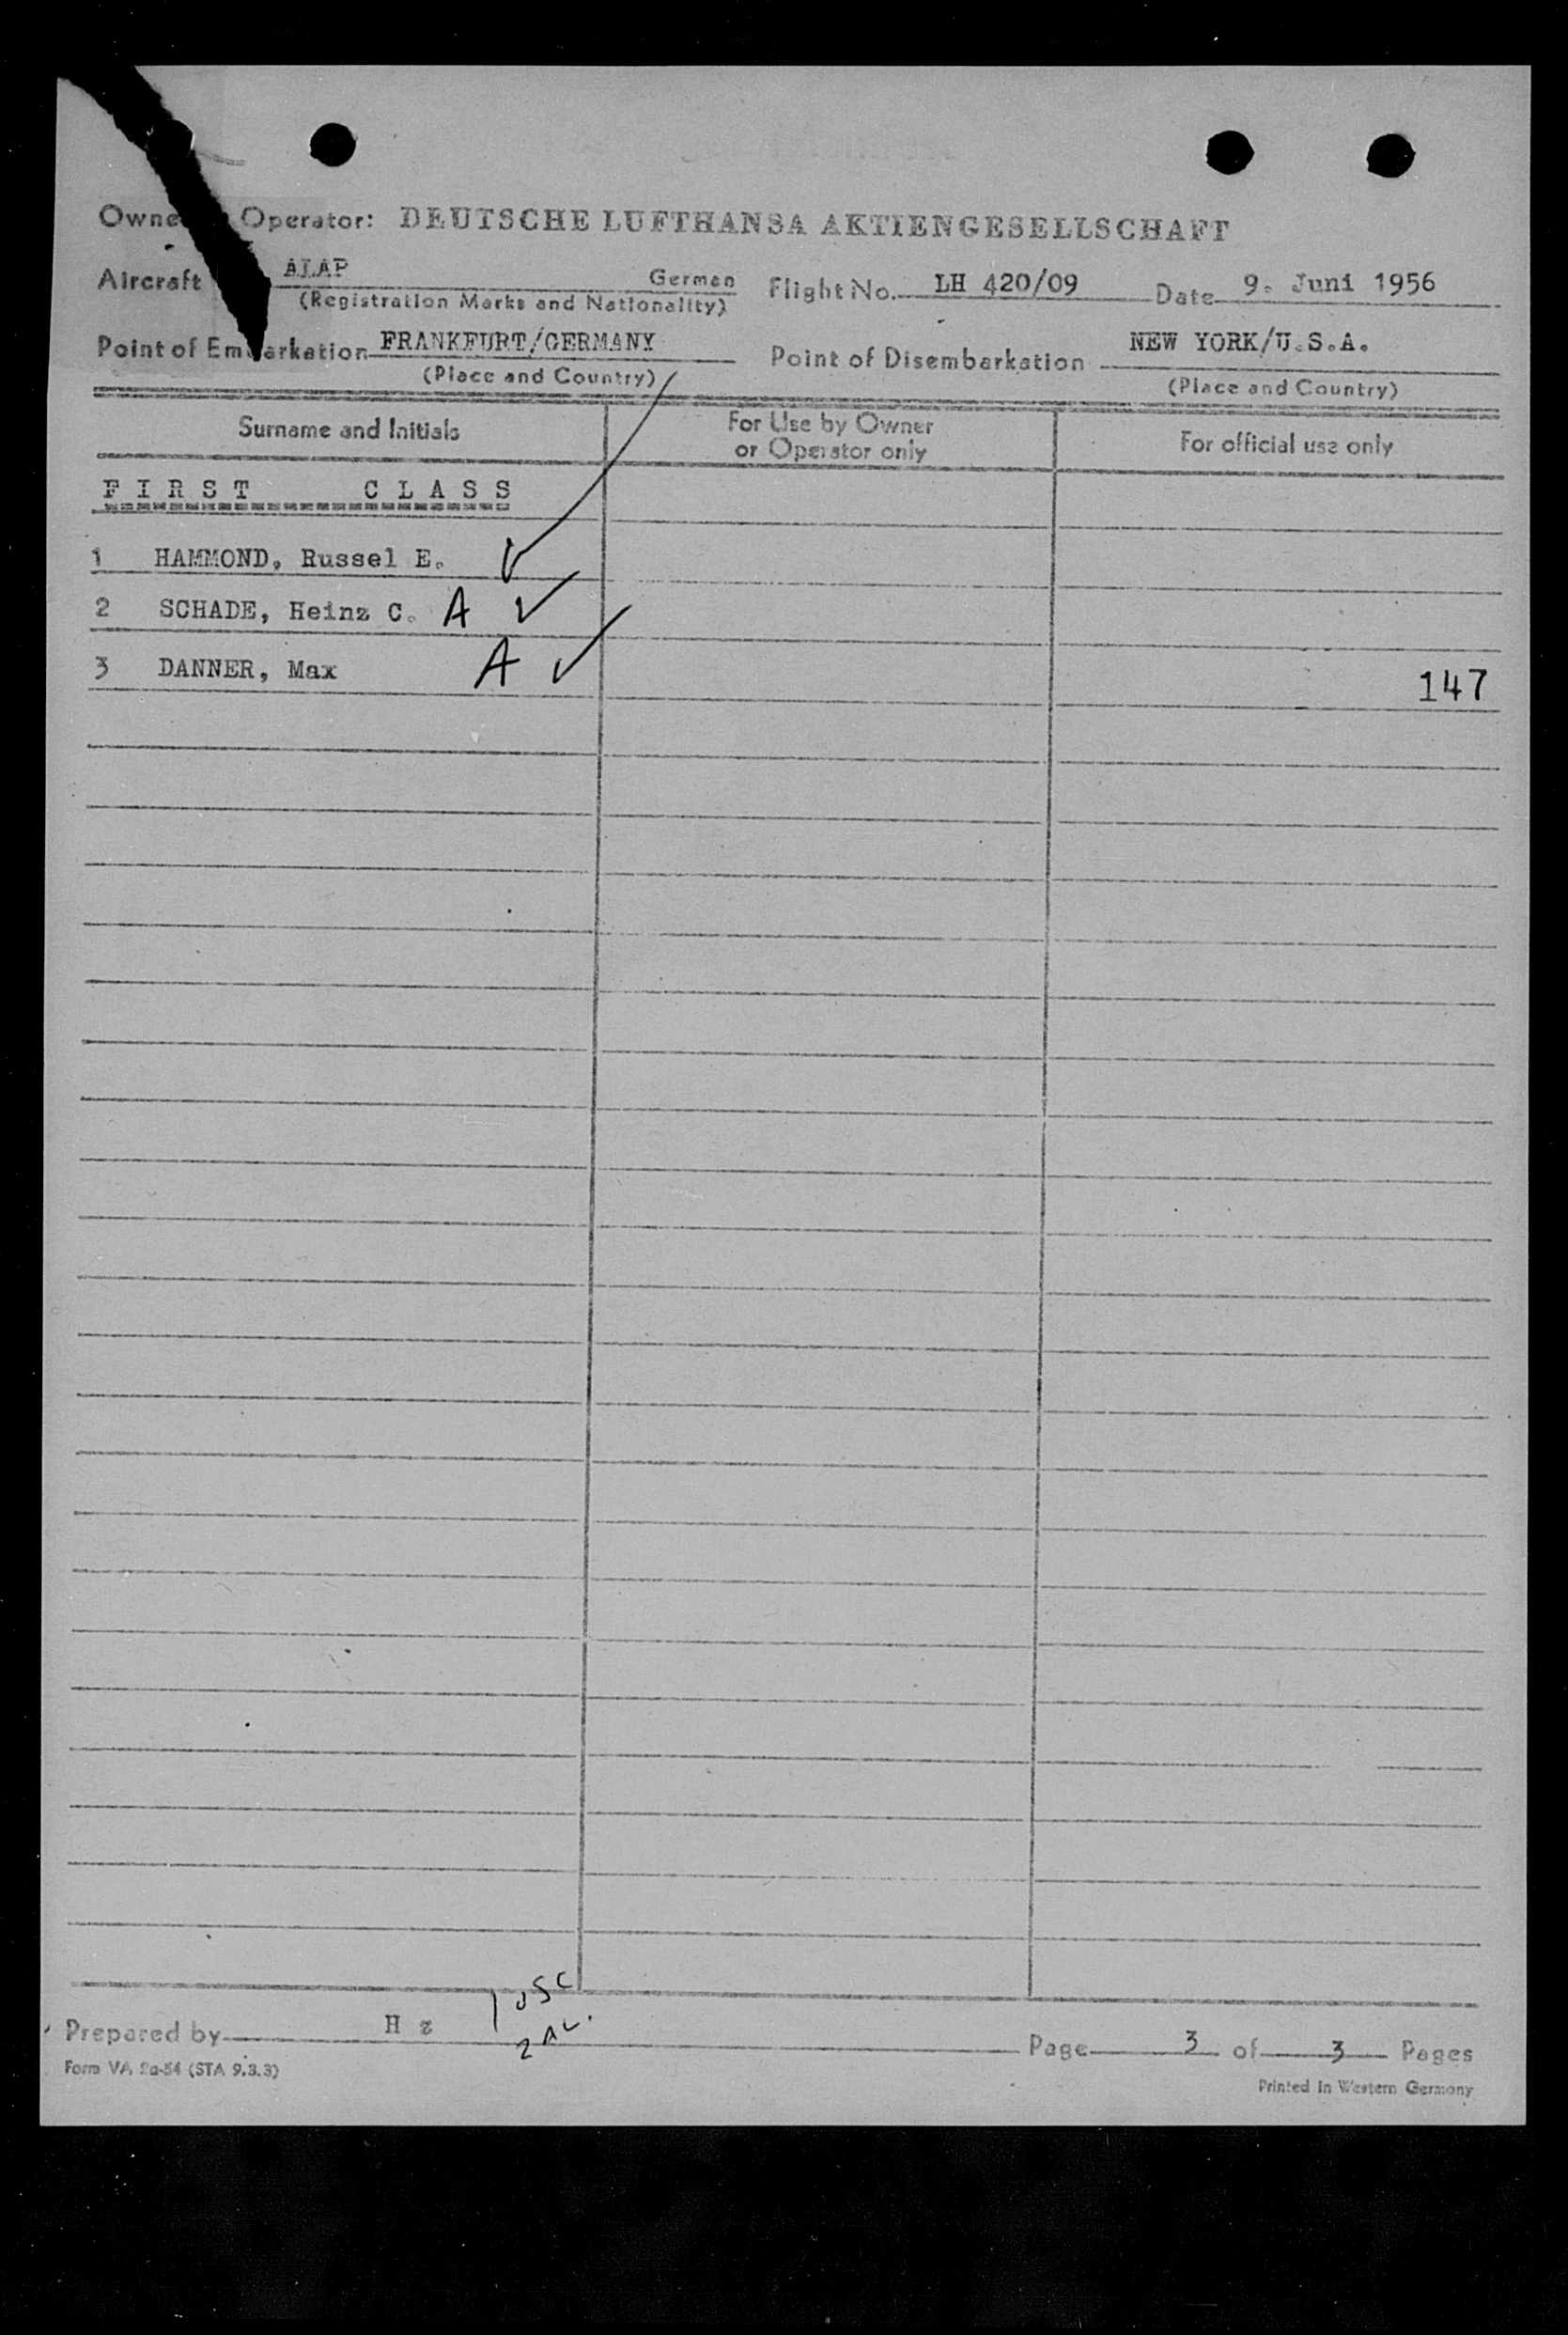 Owne Operator: DEUTSCHE LUFTHANSA AKTIENGESELLSCHAFT
Aircraft ALAP German Flight No. LH 420/09 Date 9. Juni 1956
(Registration Marks and Nationality)
Point of Em arkation FRANKFURT/GERMANY Point of Disembarkation NEW YORK/U.S.A.
(Place and Country) (Place and Country)
Surname and Initials For Use by Owner or Operator only For official use only
FIRST CLASS
1 HAMMOND, Russel E. ✓
2 SCHADE, Heinz C. A ✓
3 DANNER, Max A ✓ 147
1 USC
Prepared by H z 2 AL. Page 3 of 3 Pages
Form VA 2a-54 (STA 9.3.3)
Printed in Western Germany